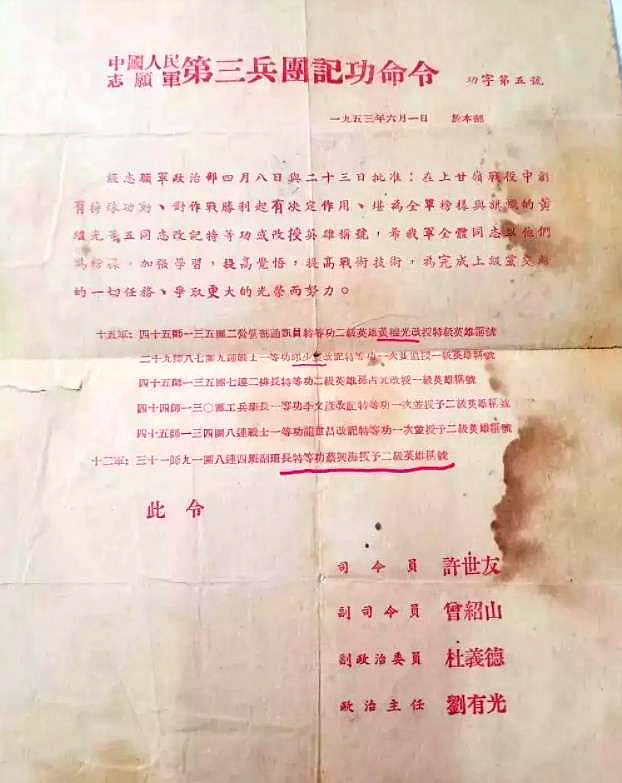 中國人民志願軍第三兵團記功命令 功字第五號
一九五三年六月一日 於本部
經志願軍政治部四月八日與二十三日批准：在上甘嶺戰役中創
有特殊功勳、對作戰勝利起有決定作用、堪為全軍榜樣與旗幟的黃
繼光等五同志改記特等功或改授英雄稱號，希我軍全體同志以他們
為榜樣，加强學習，提高覺悟，提高戰術技術，為完成上級黨交給
的一切任務、爭取更大的光榮而努力。
十五軍：四十五師一三五團二營營部通訊員特等功二級英雄黃繼光改授特級英雄稱號
二十九師八七團九連戰士一等功邱少雲改記特等功一次並追授一級英雄稱號
四十五師一三五團七連二排長特等功二級英雄孫占元改授一級英雄稱號
四十四師一三〇團工兵班長一等功李文彥改記特等功一次並授予二級英雄稱號
四十五師一三四團八連戰士一等功龍世昌改記特等功一次並授予二級英雄稱號
十二軍：三十一師九一團八連四班副班長特等功蔡興海授予二級英雄稱號
此令
司令員 許世友
副司令員 曾紹山
副政治委員 杜義德
政治主任 劉有光